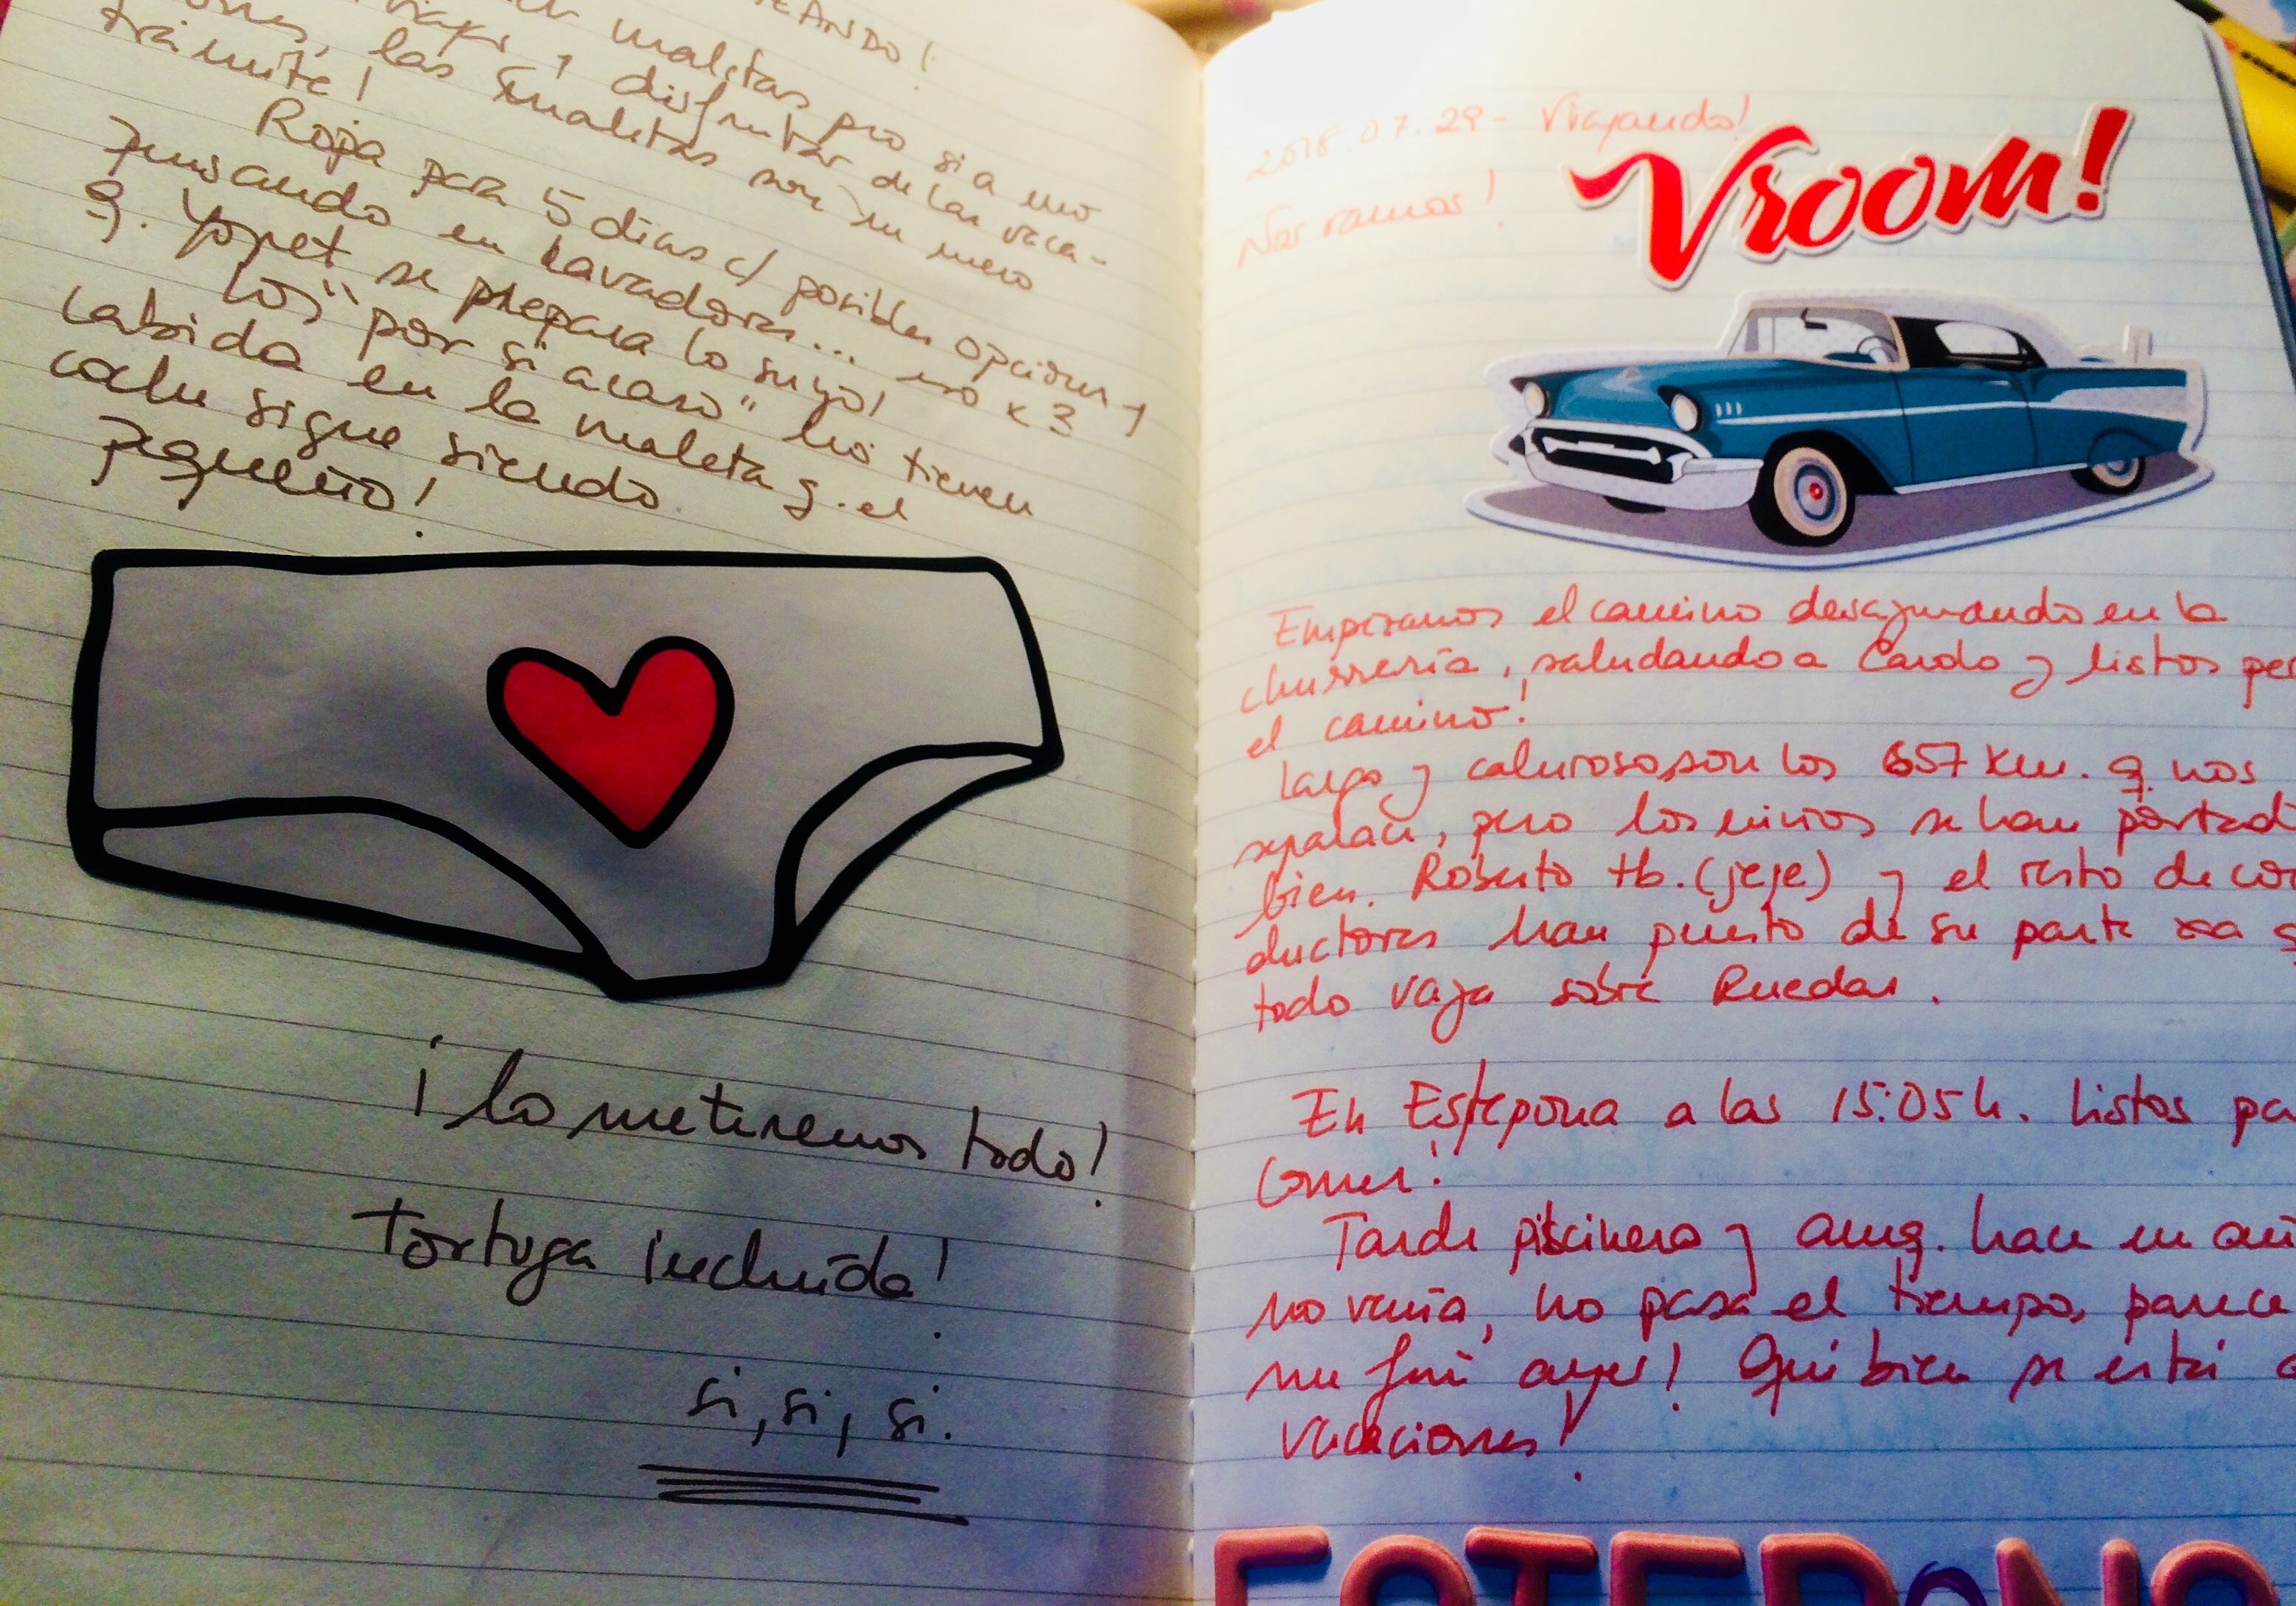 EANDO!
malitas pro si a uno
viajes y disfrutar de las vaca-
ones, las "malitas son un mero
trámite!
Ropa para 5 días c/ posibles opciones y
pensando en lavadoras... eso x 3
q. Yopet se prepara lo suyo!
Los "por si acaso" no tienen
cabida en la maleta q. el
coche sigue siendo
pequeño!
¡lo meteremos todo!
Tortuga incluída!
si, si, si.
2018.07.29- Viajando!
Nos vamos!
Vroom!
Empezamos el camino desayunando en la
churrería, saludando a Cando y listos par
el camino!
Largo y caluroso son los 657 Km. q. nos
separan, pero los niños se han portad
bien. Roberto tb. (jeje) y el resto de con
ductores han puesto de su parte xa q
todo vaya sobre Ruedas.
En Estepona a las 15:05h. Listos pa
comer!
Tarde piscinera y aunq. hace un añ
no venía, no pasa el tiempo, parece
me fui ayer! Qué bien se está d
vacaciones!
ESTEPONA